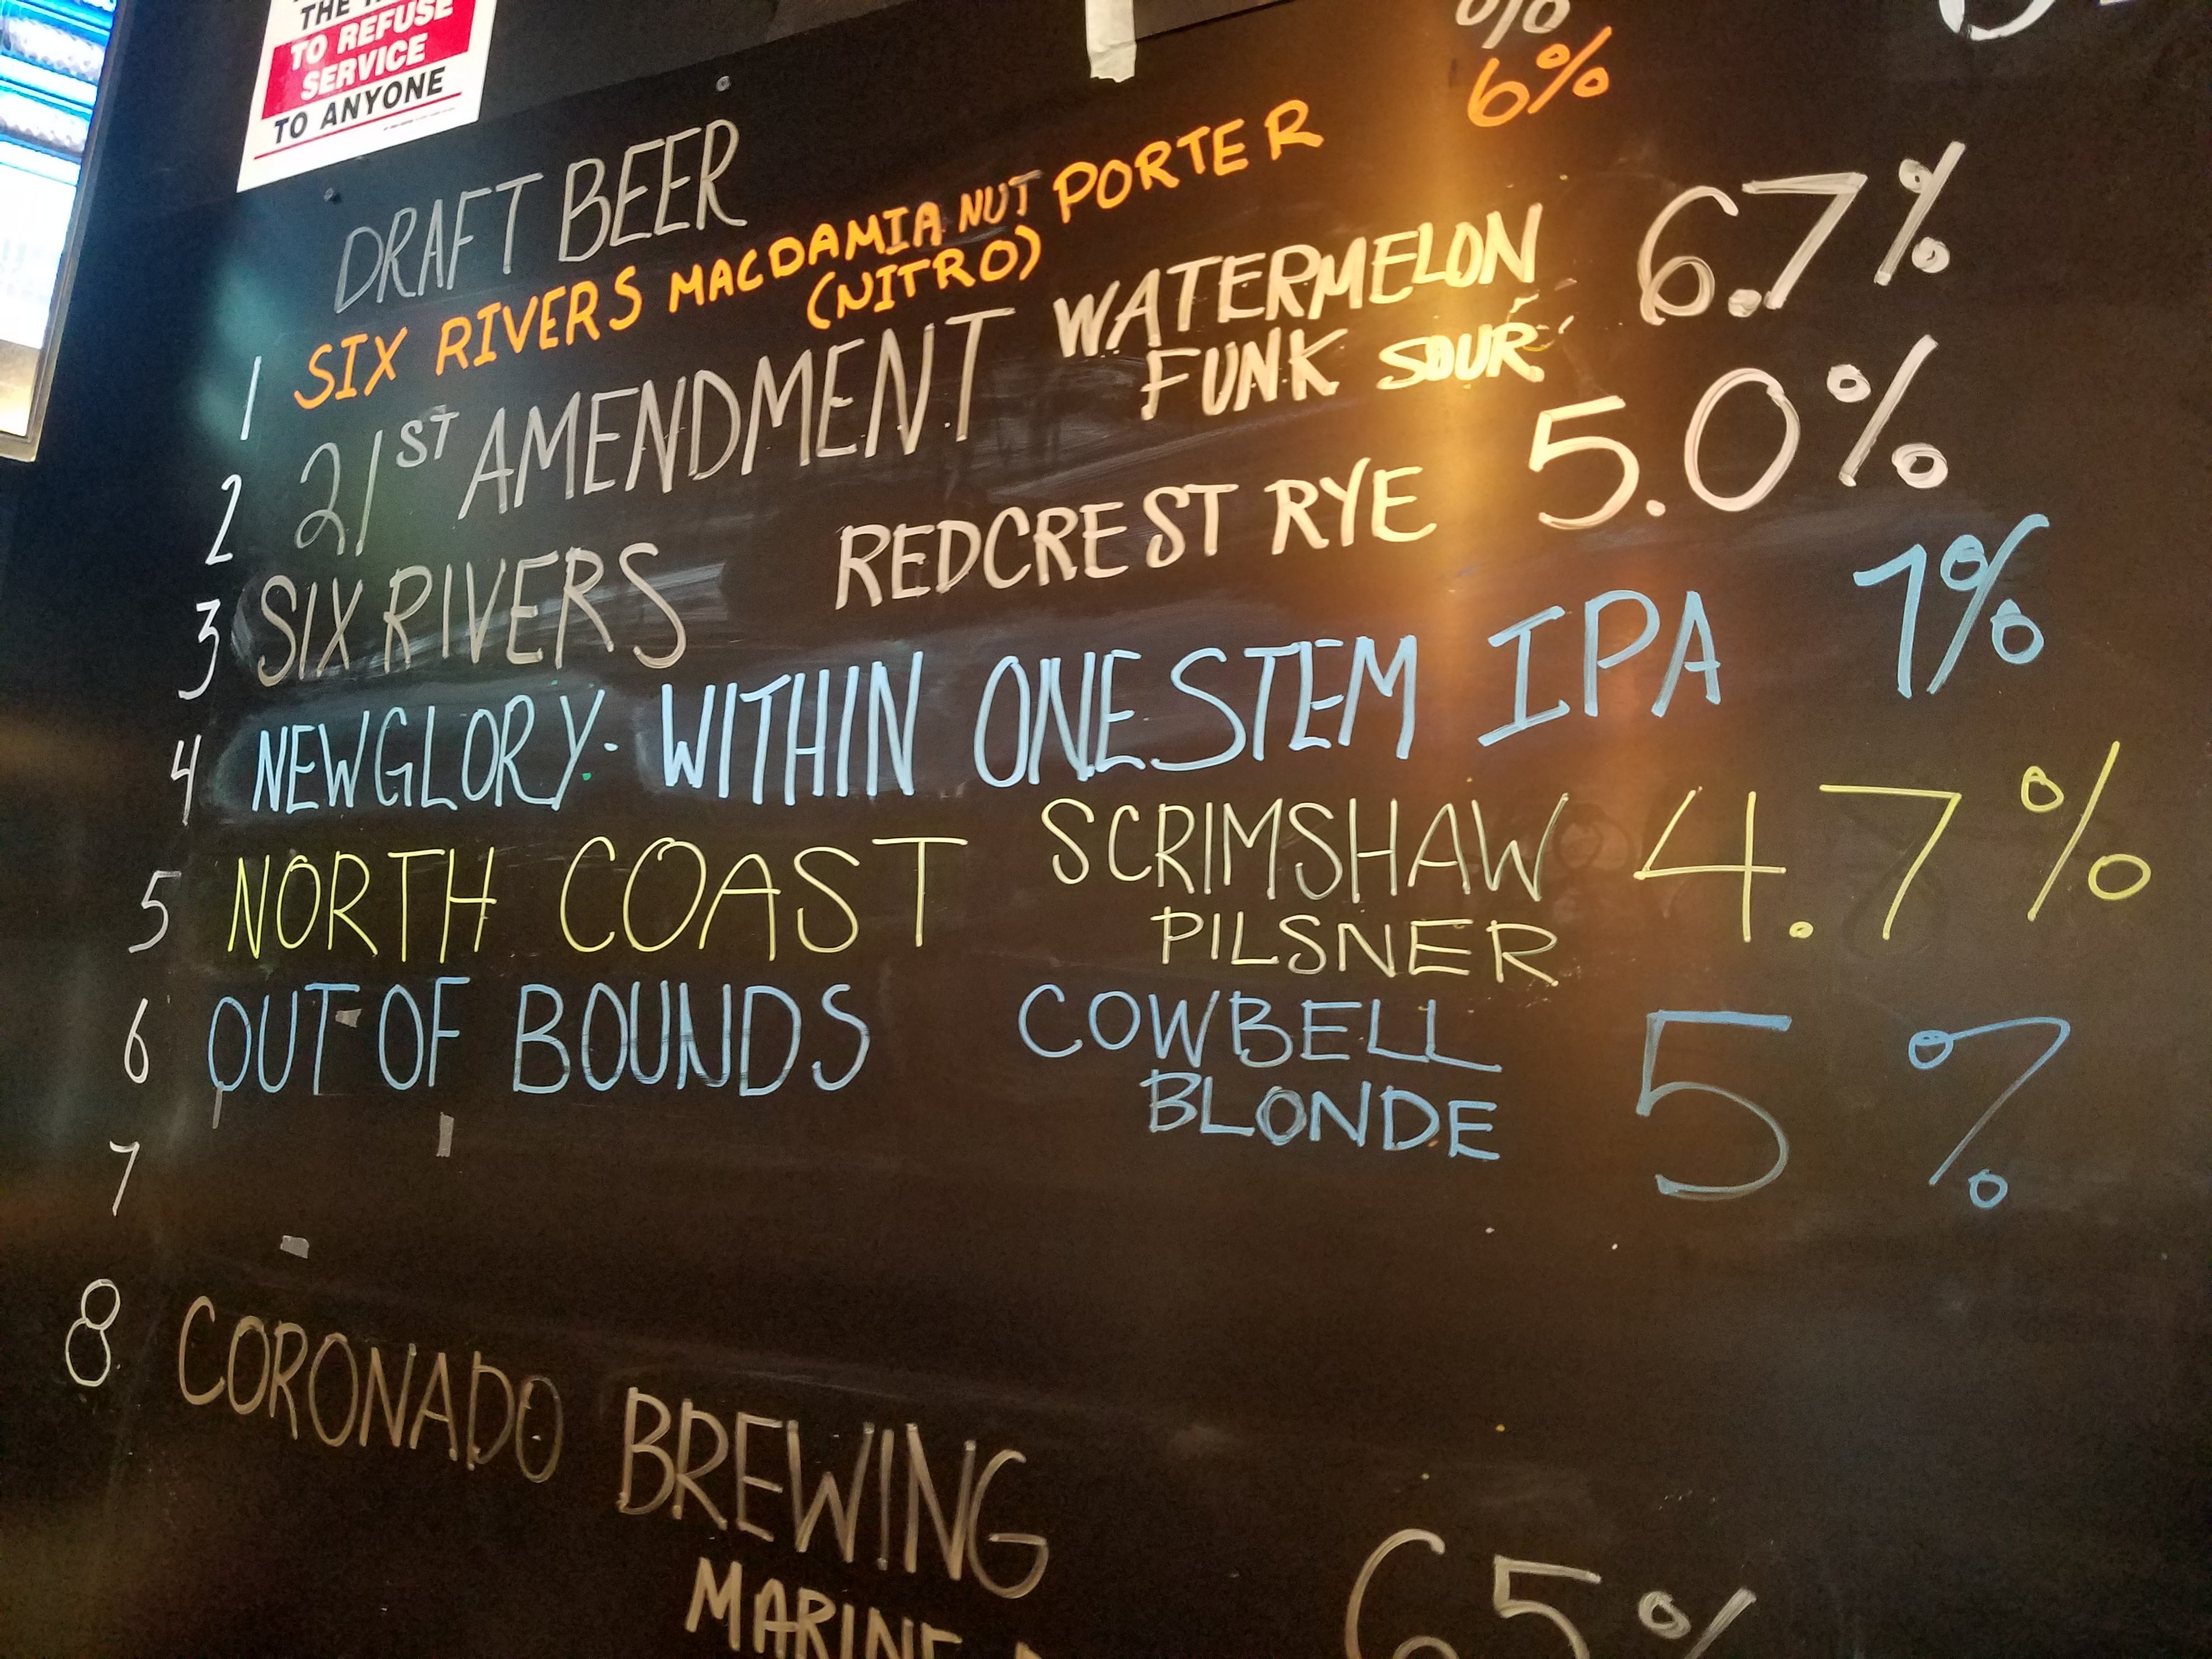 TO REFUSE
SERVICE
TO ANYONE
%
DRAFT BEER
1 SIX RIVERS MACDAMIA NUT PORTER 6%
(NITRO)
2 21ST AMENDMENT WATERMELON 6.7%
FUNK SOUR
3 SIX RIVERS REDCREST RYE 5.0%
4 NEW GLORY - WITHIN ONE STEM IPA 7%
5 NORTH COAST SCRIMSHAW 4.7%
PILSNER
6 OUT OF BOUNDS COWBELL 5%
BLONDE
7
8 CORONADO BREWING
MARINE 65%